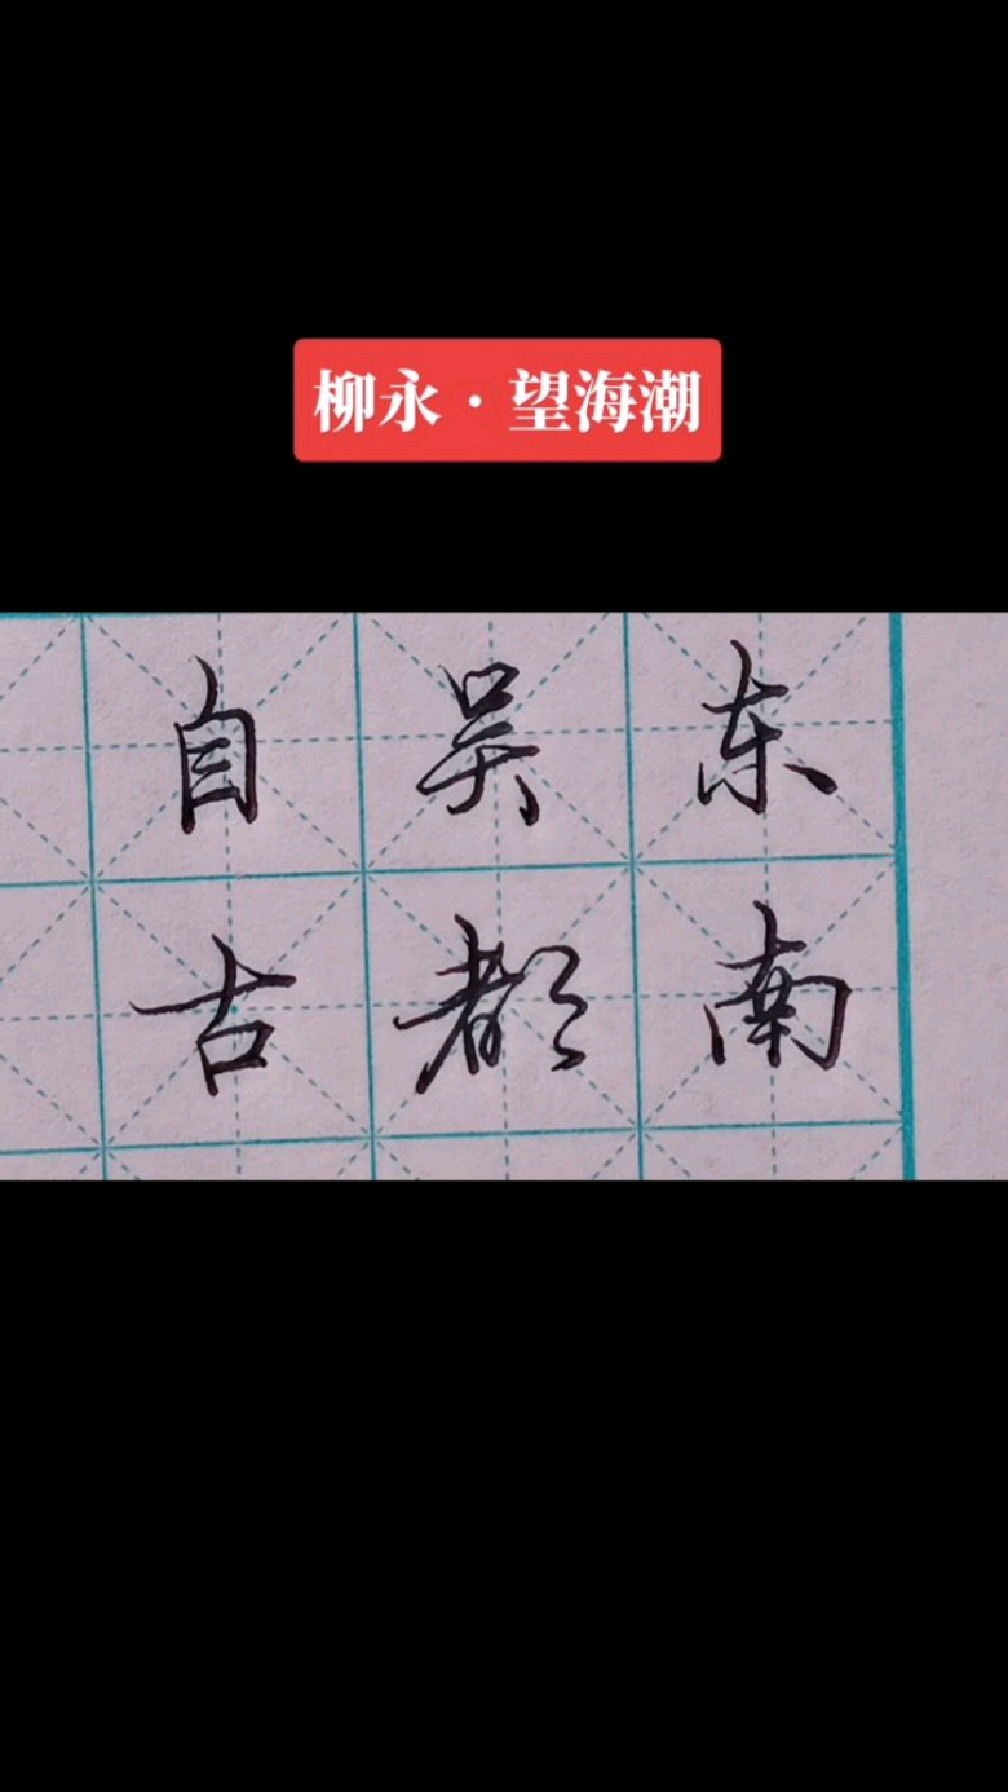 柳永·望海潮
东南
吴都
自古